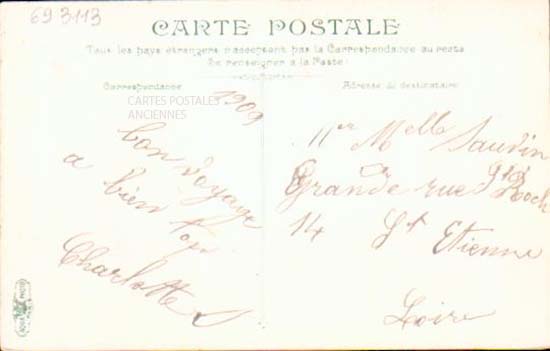 693113
CARTE POSTALE
Tous les pays étrangers n'acceptent pas la Correspondance au recto
Se renseigner à la Poste
Correspondance
Adresse du destinataire
CARTES POSTALES
ANCIENNES
1909
bon voyage
a bien
Charlotte S
Melle Saudin
Grande rue St Roch
14 St Etienne
Loire